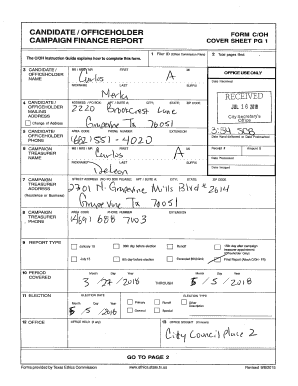 CANDIDATE / OFFICEHOLDER FORM C/OH
CAMPAIGN FINANCE REPORT COVER SHEET PG 1
The C/OH Instruction Guide explains how to complete this form.
1 Filer ID (Ethics Commission Filers)
2 Total pages filed:
3 CANDIDATE / OFFICEHOLDER NAME
MS / MRS / MR FIRST MI
Carlos A
NICKNAME LAST SUFFIX
OFFICE USE ONLY
Date Received
RECEIVED
JUL 16 2018
City Secretary's Office
4 CANDIDATE / OFFICEHOLDER MAILING ADDRESS
Change of Address
ADDRESS / PO BOX; APT / SUITE #; CITY; STATE; ZIP CODE
2220 Lane
Grapevine Tx 76051
5 CANDIDATE / OFFICEHOLDER PHONE
AREA CODE PHONE NUMBER EXTENSION
551-4020
Date Hand-delivered or Date Postmarked
6 CAMPAIGN TREASURER NAME
MS / MRS / MR FIRST MI
Carlos A
NICKNAME LAST SUFFIX
DeLeon
Receipt # Amount $
Date Processed
Date Imaged
7 CAMPAIGN TREASURER ADDRESS
(Residence or Business)
STREET ADDRESS (NO PO BOX PLEASE); APT / SUITE #; CITY; STATE; ZIP CODE
2701 N. Grapevine Mills Blvd # 2614
Grapevine Tx 76051
8 CAMPAIGN TREASURER PHONE
AREA CODE PHONE NUMBER EXTENSION
(469) 688 7703
9 REPORT TYPE
January 15
30th day before election
Runoff
15th day after campaign treasurer appointment (Officeholder Only)
July 15
8th day before election
Exceeded $500 limit
Final Report (Attach C/OH - FR)
10 PERIOD COVERED
Month Day Year Month Day Year
3 / 27 / 2018 THROUGH 5 / 5 / 2018
11 ELECTION
ELECTION DATE ELECTION TYPE
Month Day Year
5 / 5 / 2018
Primary
Runoff
Other Description
General
Special
12 OFFICE
OFFICE HELD (if any)
13 OFFICE SOUGHT (if known)
City Council Place 2
GO TO PAGE 2
Forms provided by Texas Ethics Commission www.ethics.state.tx.us Revised 9/8/2015